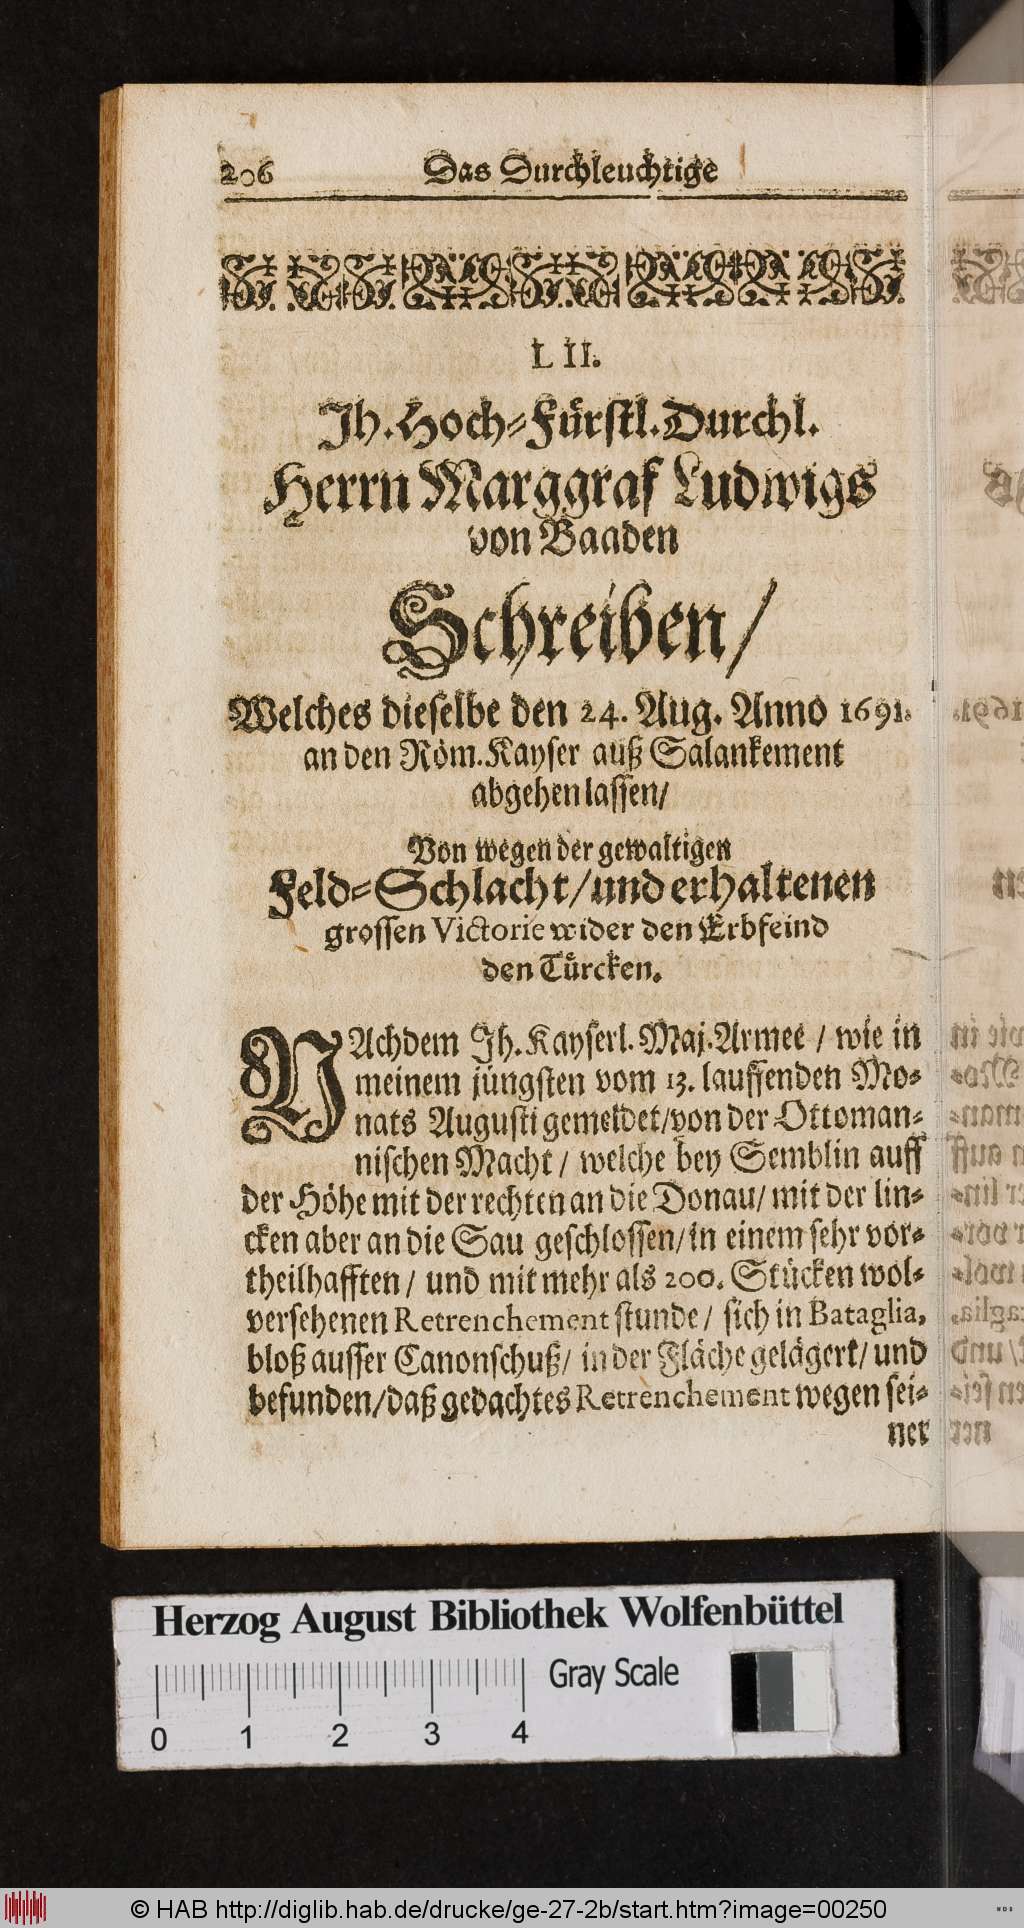 206 Das Durchleuchtige
LII.
Jh. Hoch-Fürstl. Durchl.
Herrn Marggraf Ludwigs
von Baaden
Schreiben/
Welches dieselbe den 24. Aug. Anno 1691.
an den Röm. Kayser auß Salankement
abgehen lassen/
Von wegen der gewaltigen
Feld-Schlacht/und erhaltenen
grossen Victorie wider den Erbfeind
den Türcken.
NAchdem Jh. Kayserl. Maj. Armee / wie in
meinem jüngsten vom 13. lauffenden Mo-
nats Augusti gemeldet/von der Ottoman-
nischen Macht / welche bey Semblin auff
der Höhe mit der rechten an die Donau/ mit der lin-
cken aber an die Sau geschlossen/in einem sehr vor-
theilhafften / und mit mehr als 200. Stücken wol-
versehenen Retrenchement stunde / sich in Bataglia,
bloß ausser Canonschuß/ in der Fläche gelägert/ und
befunden/daß gedachtes Retrenchement wegen sei-
ner
Herzog August Bibliothek Wolfenbüttel
Gray Scale
0 1 2 3 4
© HAB http://diglib.hab.de/drucke/ge-27-2b/start.htm?image=00250